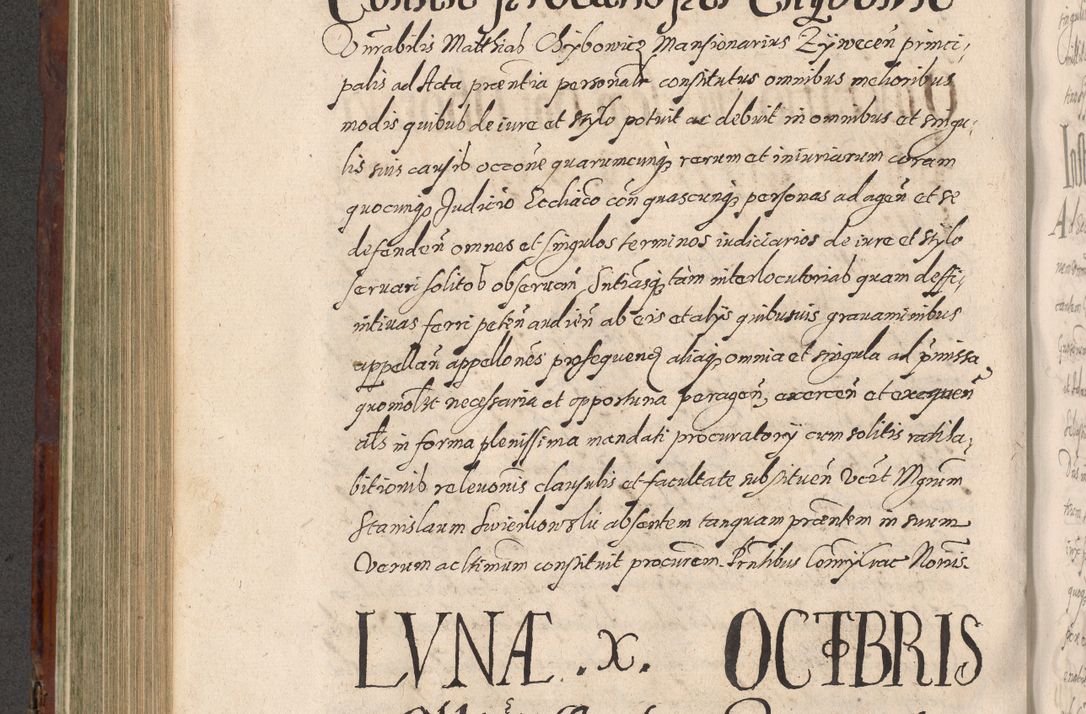 Venrabilis Matthias Chybowicz Mansionarius Zÿwecen̄ princi,
palis ad Acta præntia personalr constitutus omnibus melioribus
modis quibus de iure et stylo potuit ac debuit in omnibus et singu,
lis suis causis occone quarumcunq, rerum et iniuriarum coram
quocunq, Judicio Ecclīaco con̄ quascunq, personas ad agen̄ et se
defenden̄ omnes et singulos terminos iudiciarios de iure et stylo
servari solitos observan̄ Sntīasq, tam interlocutorias quam deffi,
nitivas ferri peten̄ audien̄ ab eis et alÿs quibusvis gravaminibus
appellan̄ appellones prosequen̄ aliaq, omnia et singula ad p̄missa
quomolit necessaria et opportuna peragen̄, exercen̄ et exequen̄
als in forma plenissima mandati procuratorÿ cum solitis ratiha,
bitionis relevonis clausulis et facultate substituen̄ Vent Mgnrm
Stanislaum absentem tanquam præntem in suum
Verum ac ltimum constituit procurem. Prntibus Nonis
LVNÆ .x. OCTBRIS